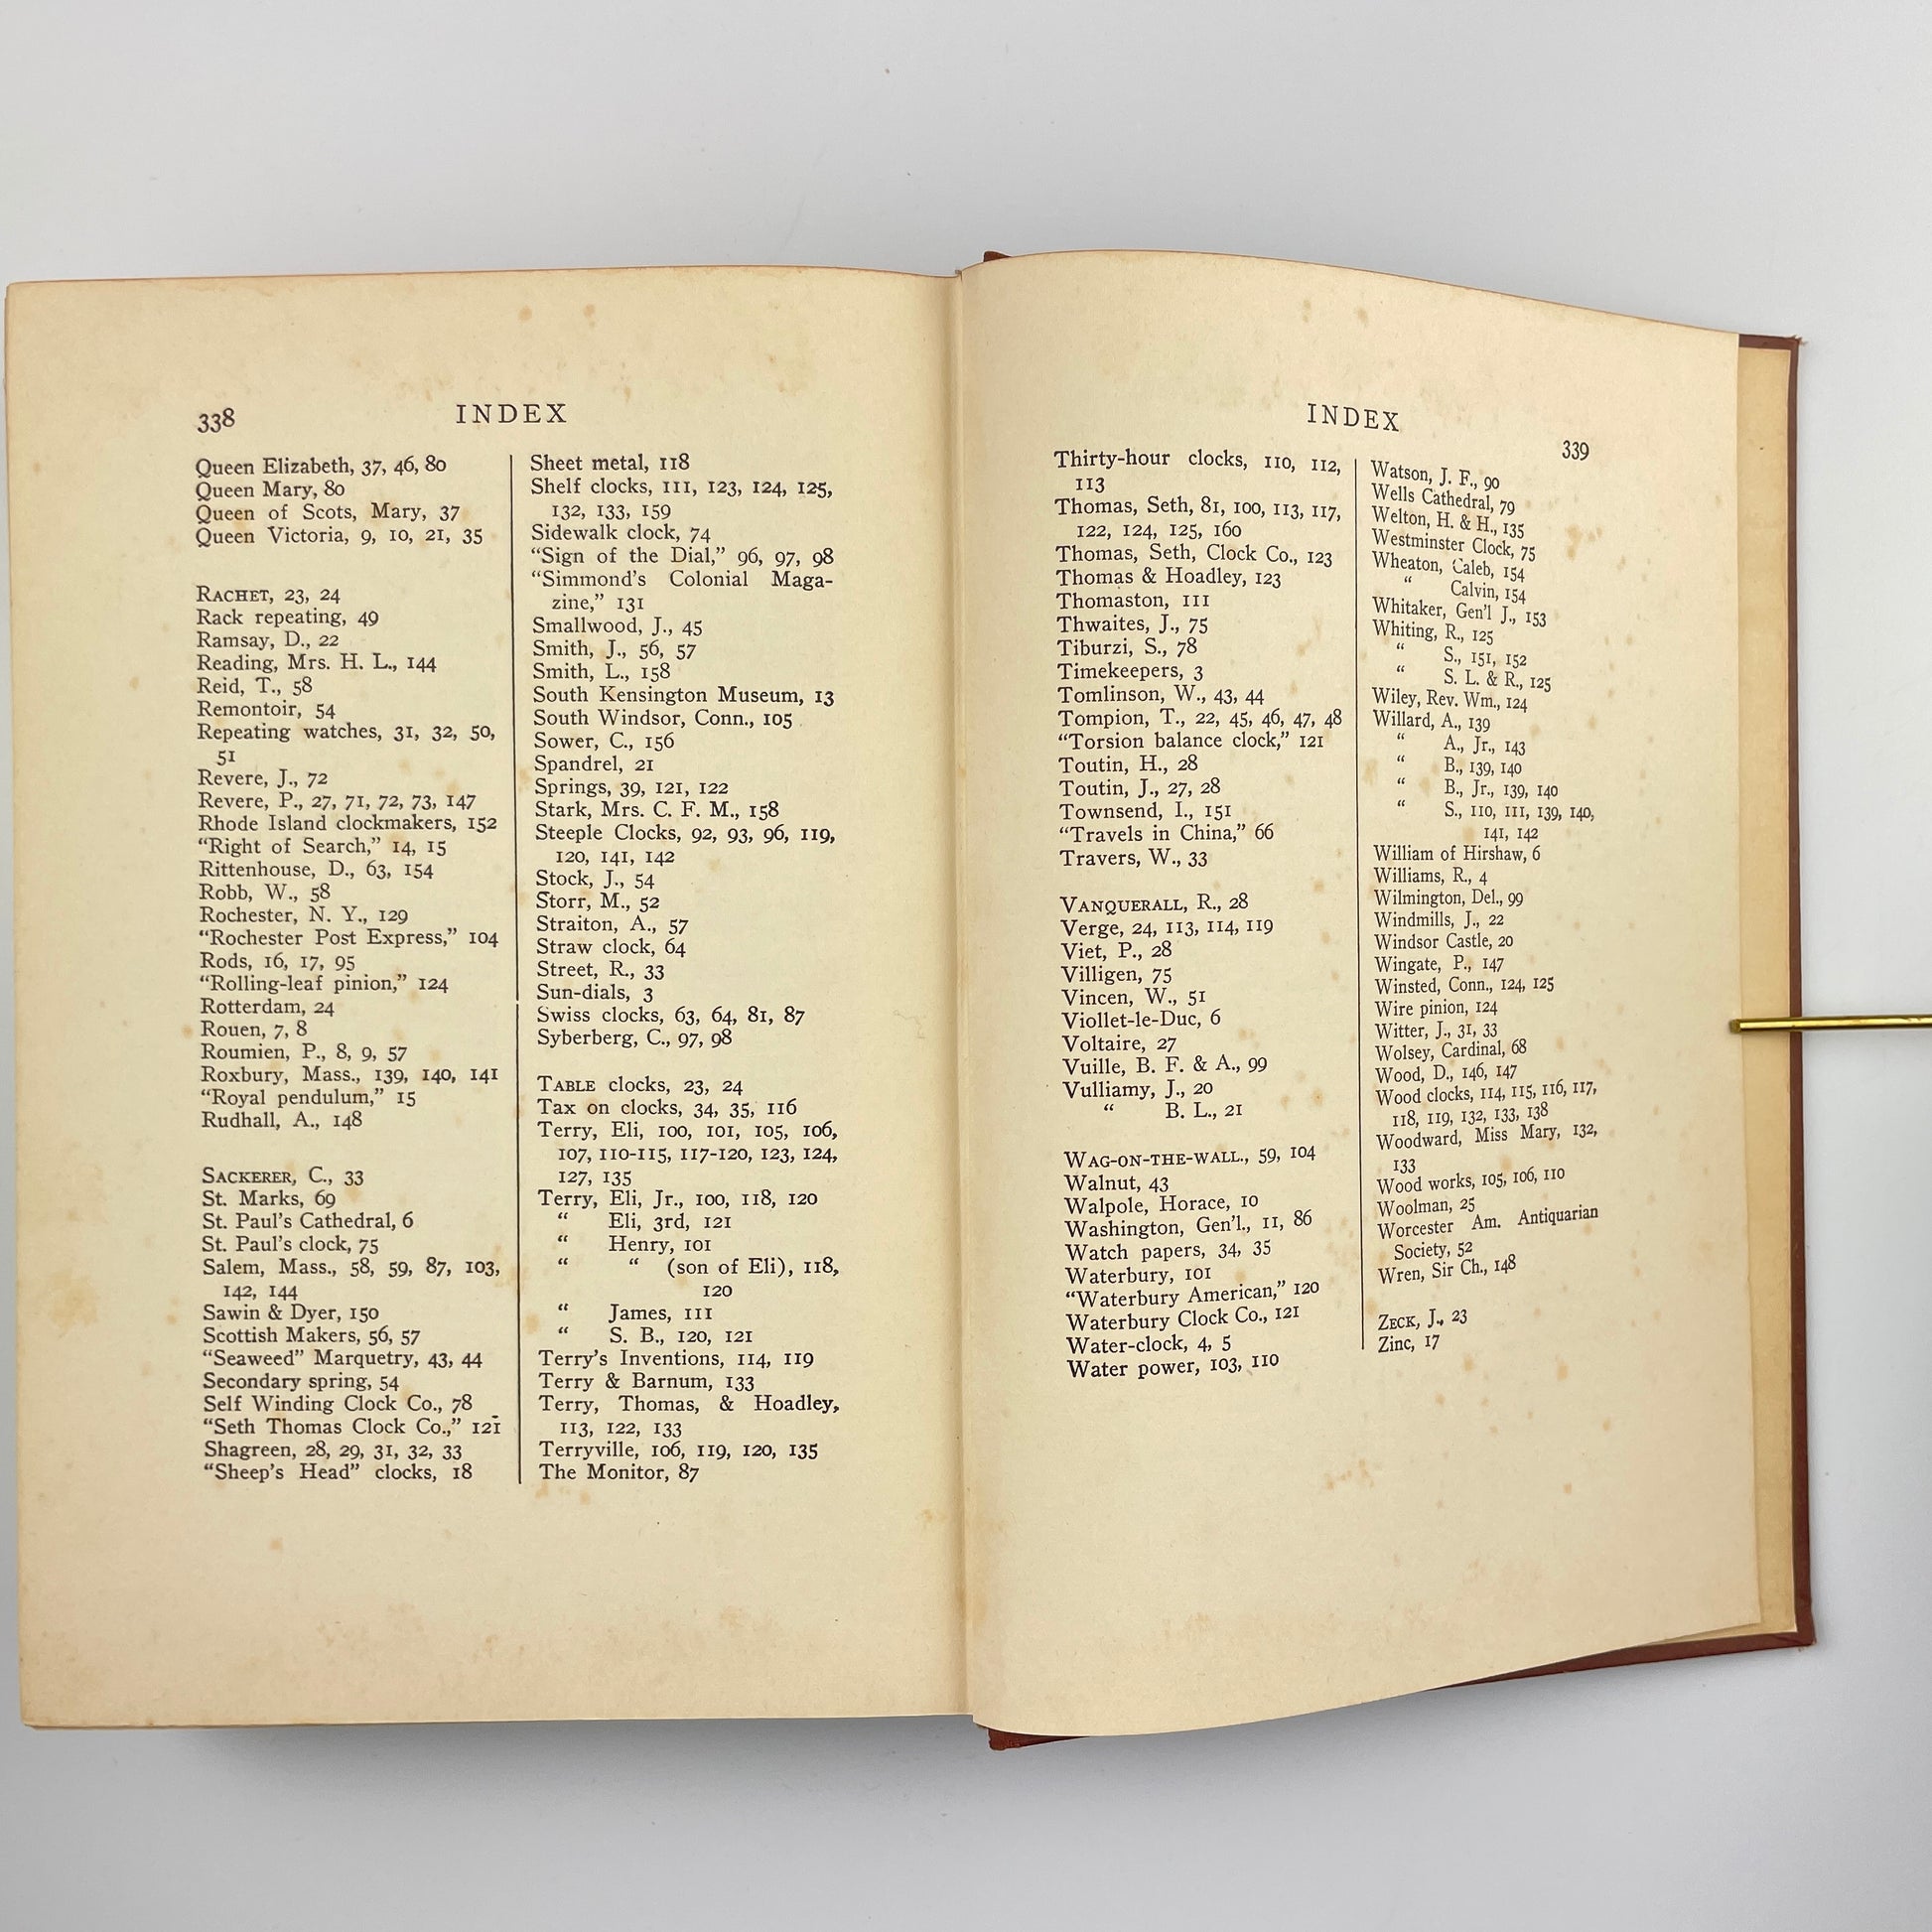 338
INDEX
Queen Elizabeth, 37, 46, 80
Queen Mary, 80
Queen of Scots, Mary, 37
Queen Victoria, 9, 10, 21, 35
RACHET, 23, 24
Rack repeating, 49
Ramsay, D., 22
Reading, Mrs. H. L., 144
Reid, T., 58
Remontoir, 54
Repeating watches, 31, 32, 50,
51
Revere, J., 72
Revere, P., 27, 71, 72, 73, 147
Rhode Island clockmakers, 152
“Right of Search,” 14, 15
Rittenhouse, D., 63, 154
Robb, W., 58
Rochester, N. Y., 129
“Rochester Post Express,” 104
Rods, 16, 17, 95
“Rolling-leaf pinion,” 124
Rotterdam, 24
Rouen, 7, 8
Roumien, P., 8, 9, 57
Roxbury, Mass., 139, 140, 141
“Royal pendulum,” 15
Rudhall, A., 148
SACKERER, C., 33
St. Marks, 69
St. Paul's Cathedral, 6
St. Paul's clock, 75
Salem, Mass., 58, 59, 87, 103,
142, 144
Sawin & Dyer, 150
Scottish Makers, 56, 57
“Seaweed” Marquetry, 43, 44
Secondary spring, 54
Self Winding Clock Co., 78
“Seth Thomas Clock Co.,” 121
Shagreen, 28, 29, 31, 32, 33
“Sheep's Head” clocks, 18
Sheet metal, 118
Shelf clocks, 111, 123, 124, 125,
132, 133, 159
Sidewalk clock, 74
“Sign of the Dial,” 96, 97, 98
“Simmond's Colonial Maga-
zine,” 131
Smallwood, J., 45
Smith, J., 56, 57
Smith, L., 158
South Kensington Museum, 13
South Windsor, Conn., 105
Sower, C., 156
Spandrel, 21
Springs, 39, 121, 122
Stark, Mrs. C. F. M., 158
Steeple Clocks, 92, 93, 96, 119,
120, 141, 142
Stock, J., 54
Storr, M., 52
Straiton, A., 57
Straw clock, 64
Street, R., 33
Sun-dials, 3
Swiss clocks, 63, 64, 81, 87
Syberberg, C., 97, 98
TABLE clocks, 23, 24
Tax on clocks, 34, 35, 116
Terry, Eli, 100, 101, 105, 106,
107, 110-115, 117-120, 123, 124,
127, 135
Terry, Eli, Jr., 100, 118, 120
“ Eli, 3rd, 121
“ Henry, 101
“ “ (son of Eli), 118,
120
“ James, 111
“ S. B., 120, 121
Terry's Inventions, 114, 119
Terry & Barnum, 133
Terry, Thomas, & Hoadley,
113, 122, 133
Terryville, 106, 119, 120, 135
The Monitor, 87
INDEX
339
Thirty-hour clocks, 110, 112,
113
Thomas, Seth, 81, 100, 113, 117,
122, 124, 125, 160
Thomas, Seth, Clock Co., 123
Thomas & Hoadley, 123
Thomaston, 111
Thwaites, J., 75
Tiburzi, S., 78
Timekeepers, 3
Tomlinson, W., 43, 44
Tompion, T., 22, 45, 46, 47, 48
“Torsion balance clock,” 121
Toutin, H., 28
Toutin, J., 27, 28
Townsend, I., 151
“Travels in China,” 66
Travers, W., 33
VANQUERALL, R., 28
Verge, 24, 113, 114, 119
Viet, P., 28
Villigen, 75
Vincen, W., 51
Viollet-le-Duc, 6
Voltaire, 27
Vuille, B. F. & A., 99
Vulliamy, J., 20
“ B. L., 21
WAG-ON-THE-WALL., 59, 104
Walnut, 43
Walpole, Horace, 10
Washington, Gen'l., 11, 86
Watch papers, 34, 35
Waterbury, 101
“Waterbury American,” 120
Waterbury Clock Co., 121
Water-clock, 4, 5
Water power, 103, 110
Watson, J. F., 90
Wells Cathedral, 79
Welton, H. & H., 135
Westminster Clock, 75
Wheaton, Caleb, 154
“ Calvin, 154
Whitaker, Gen'l J., 153
Whiting, R., 125
“ S., 151, 152
“ S. L. & R., 125
Wiley, Rev. Wm., 124
Willard, A., 139
“ A., Jr., 143
“ B., 139, 140
“ B., Jr., 139, 140
“ S., 110, 111, 139, 140,
141, 142
William of Hirshaw, 6
Williams, R., 4
Wilmington, Del., 99
Windmills, J., 22
Windsor Castle, 20
Wingate, P., 147
Winsted, Conn., 124, 125
Wire pinion, 124
Witter, J., 31, 33
Wolsey, Cardinal, 68
Wood, D., 146, 147
Wood clocks, 114, 115, 116, 117,
118, 119, 132, 133, 138
Woodward, Miss Mary, 132,
133
Wood works, 105, 106, 110
Woolman, 25
Worcester Am. Antiquarian
Society, 52
Wren, Sir Ch., 148
ZECK, J., 23
Zinc, 17